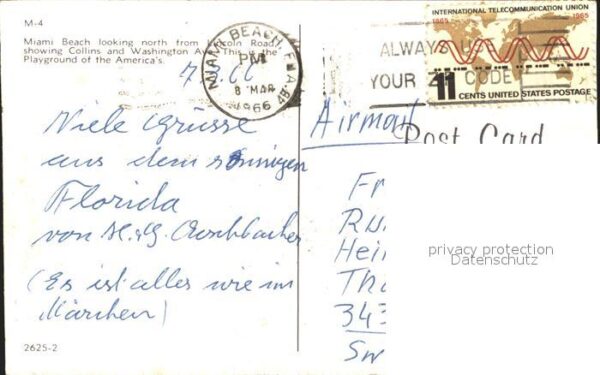 M-4
Miami Beach looking north from Lincoln Road
showing Collins and Washington Ave. This is the
Playground of the America's.
7.3.66
MIAMI BEACH, FLA.
PM
8 MAR
1966
ALWAYS U
YOUR ZI CODE
INTERNATIONAL TELECOMMUNICATION UNION
1865 1965
11 CENTS UNITED STATES POSTAGE
Viele Grüsse
aus dem sonnigen
Florida
von
(Es ist alles wie im
Märchen)
2625-2
Airmail
Post Card
Fr
Hei
343
Sw
privacy protection
Datenschutz